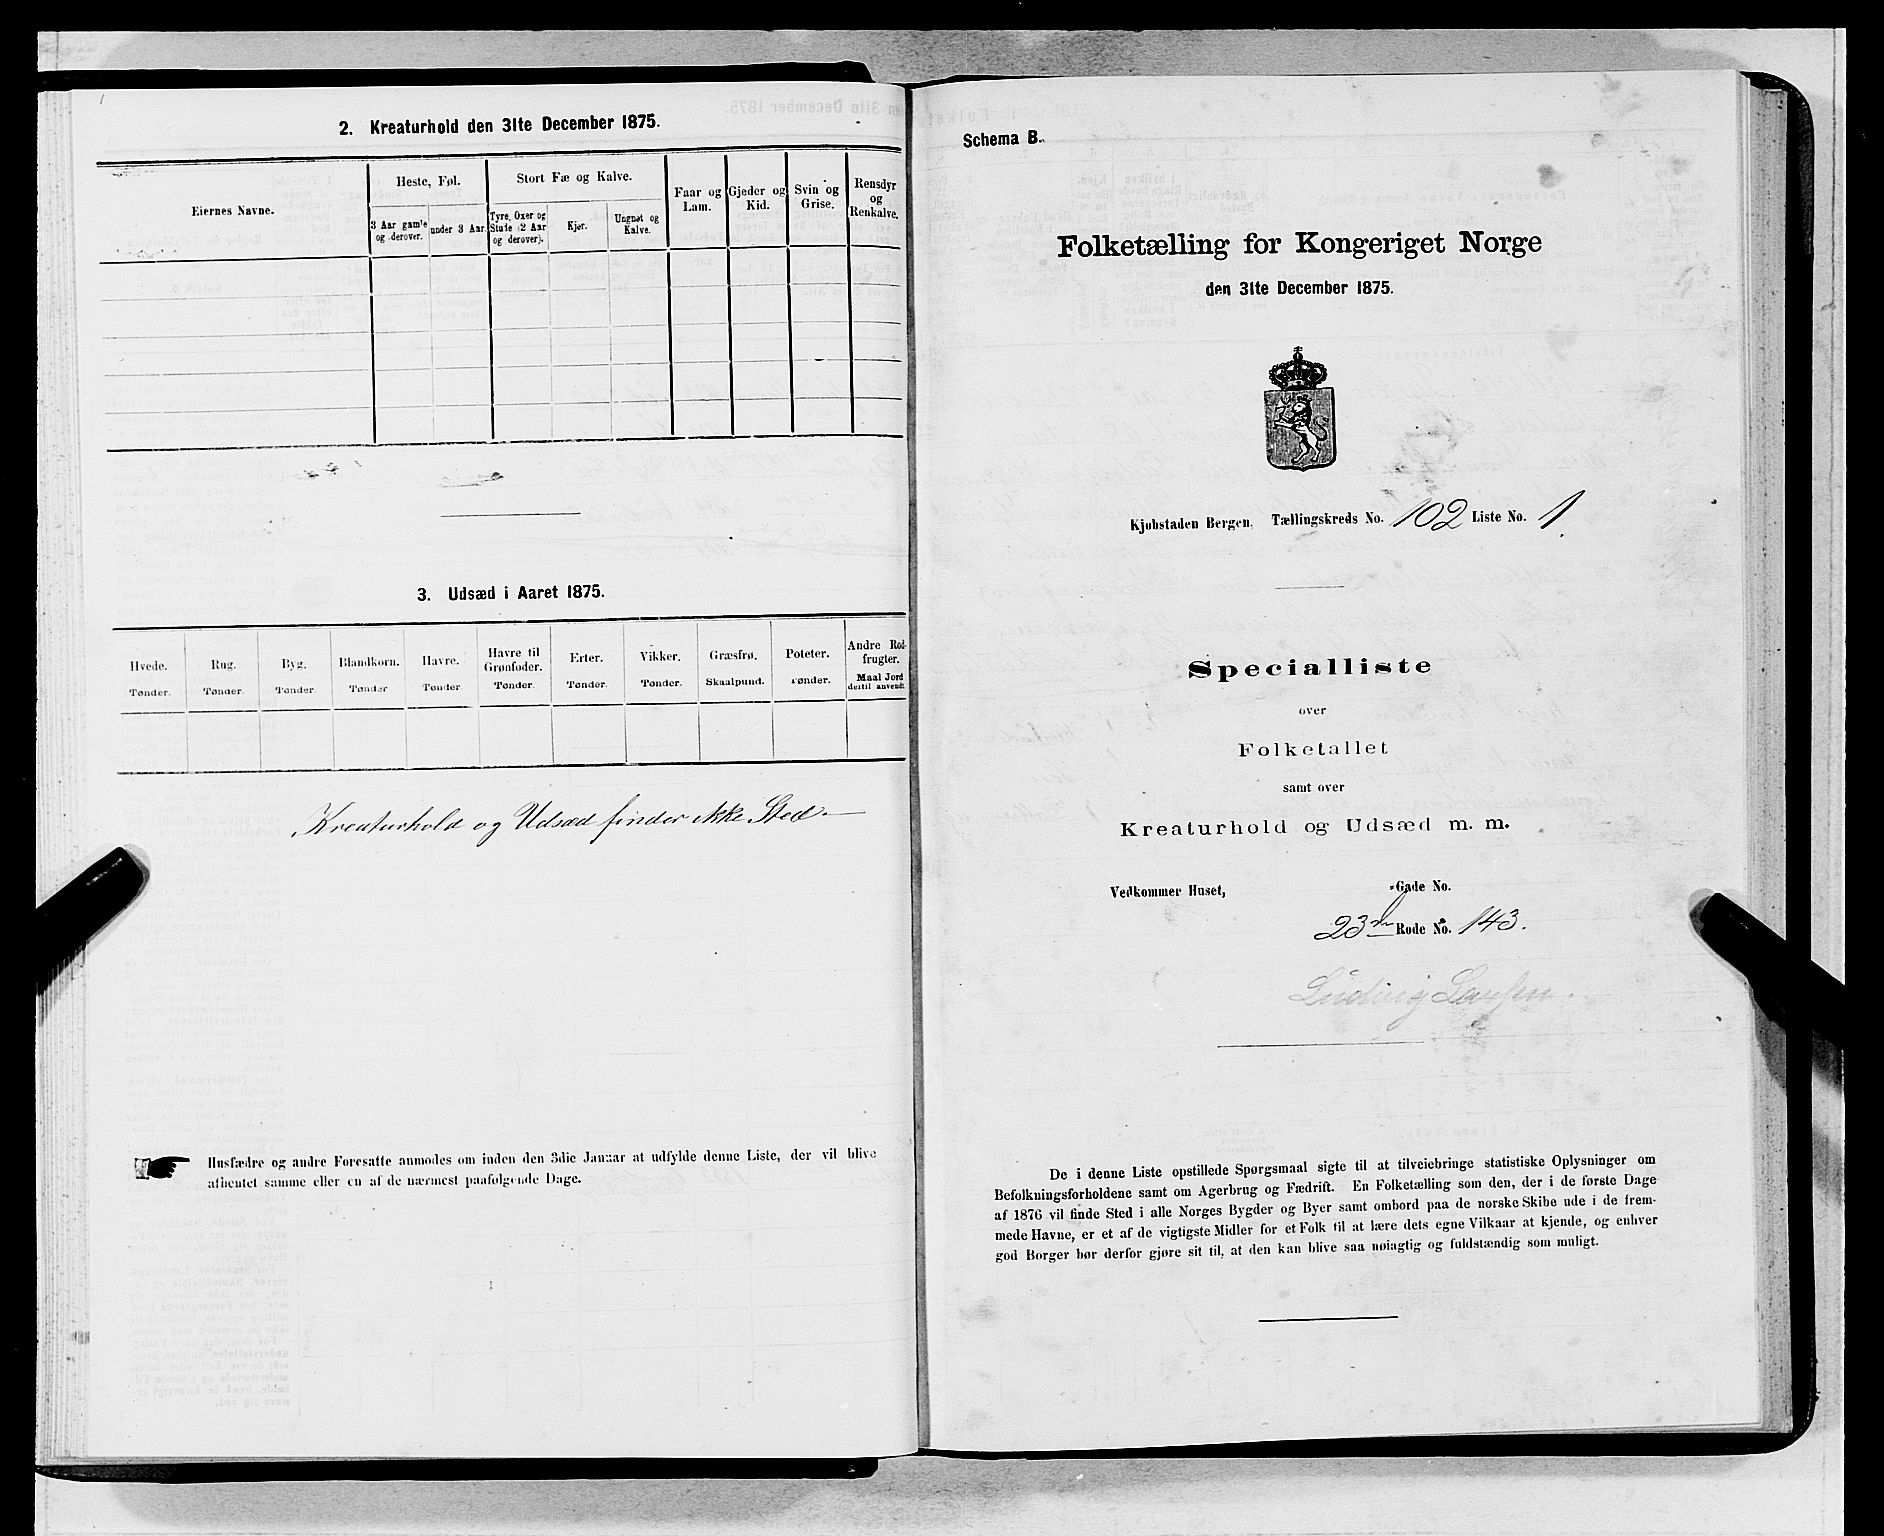 2. Kreaturhold den 31te December 1875.
Eiernes Navne.
Heste, Føl.
3 Aar gamle og derover.
under 3 Aar.
Stort Fæ og Kalve.
Tyre, Oxer og Stude (2 Aar og derover).
Kjør.
Ungnøt og Kalve.
Faar og Lam.
Gjeder og Kid.
Svin og Grise.
Rensdyr og Renkalve.
3. Udsæd i Aaret 1875.
Hvede. Tønder.
Rug. Tønder.
Byg. Tønder.
Blandkorn. Tønder
Havre. Tønder
Havre til Grønfoder. Tønder.
Erter. Tønder.
Vikker. Tønder.
Græsfrø. Skaalpund.
Poteter. Tønder.
Andre Rodfrugter. Maal Jord dertil anvendt.
Kreaturhold og Udsæd finder ikke Sted.
Husfædre og andre Foresatte anmodes om inden den 3die Januar at udfylde denne Liste, der vil blive
afhentet samme eller en af de nærmest paafølgende Dage.
Schema B.
Folketælling for Kongeriget Norge
den 31te December 1875.
Kjøbstaden Bergen. Tællingskreds No. 102 Liste No. 1
Specialliste
over
Folketallet
samt over
Kreaturhold og Udsæd m. m.
Vedkommer Huset, -Gade No.
23de Rode No. 143.
De i denne Liste opstillede Spørgsmaal sigte til at tilveiebringe statistiske Oplysninger om
Befolkningsforholdene samt om Agerbrug og Fædrift. En Folketælling som den, der i de første Dage
af 1876 vil finde Sted i alle Norges Bygder og Byer samt ombord paa de norske Skibe ude i de frem-
mede Havne, er et af de vigtigste Midler for et Folk til at lære dets egne Vilkaar at kjende, og enhver
god Borger bør derfor gjøre sit til, at den kan blive saa nøiagtig og fuldstændig som muligt.